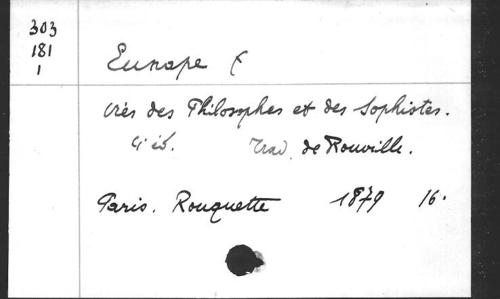 303
181
1
Eunape
Vies des Philosophes et des Sophistes.
éd. Trad. de Rouville.
Paris. Rouquette 1879 16.